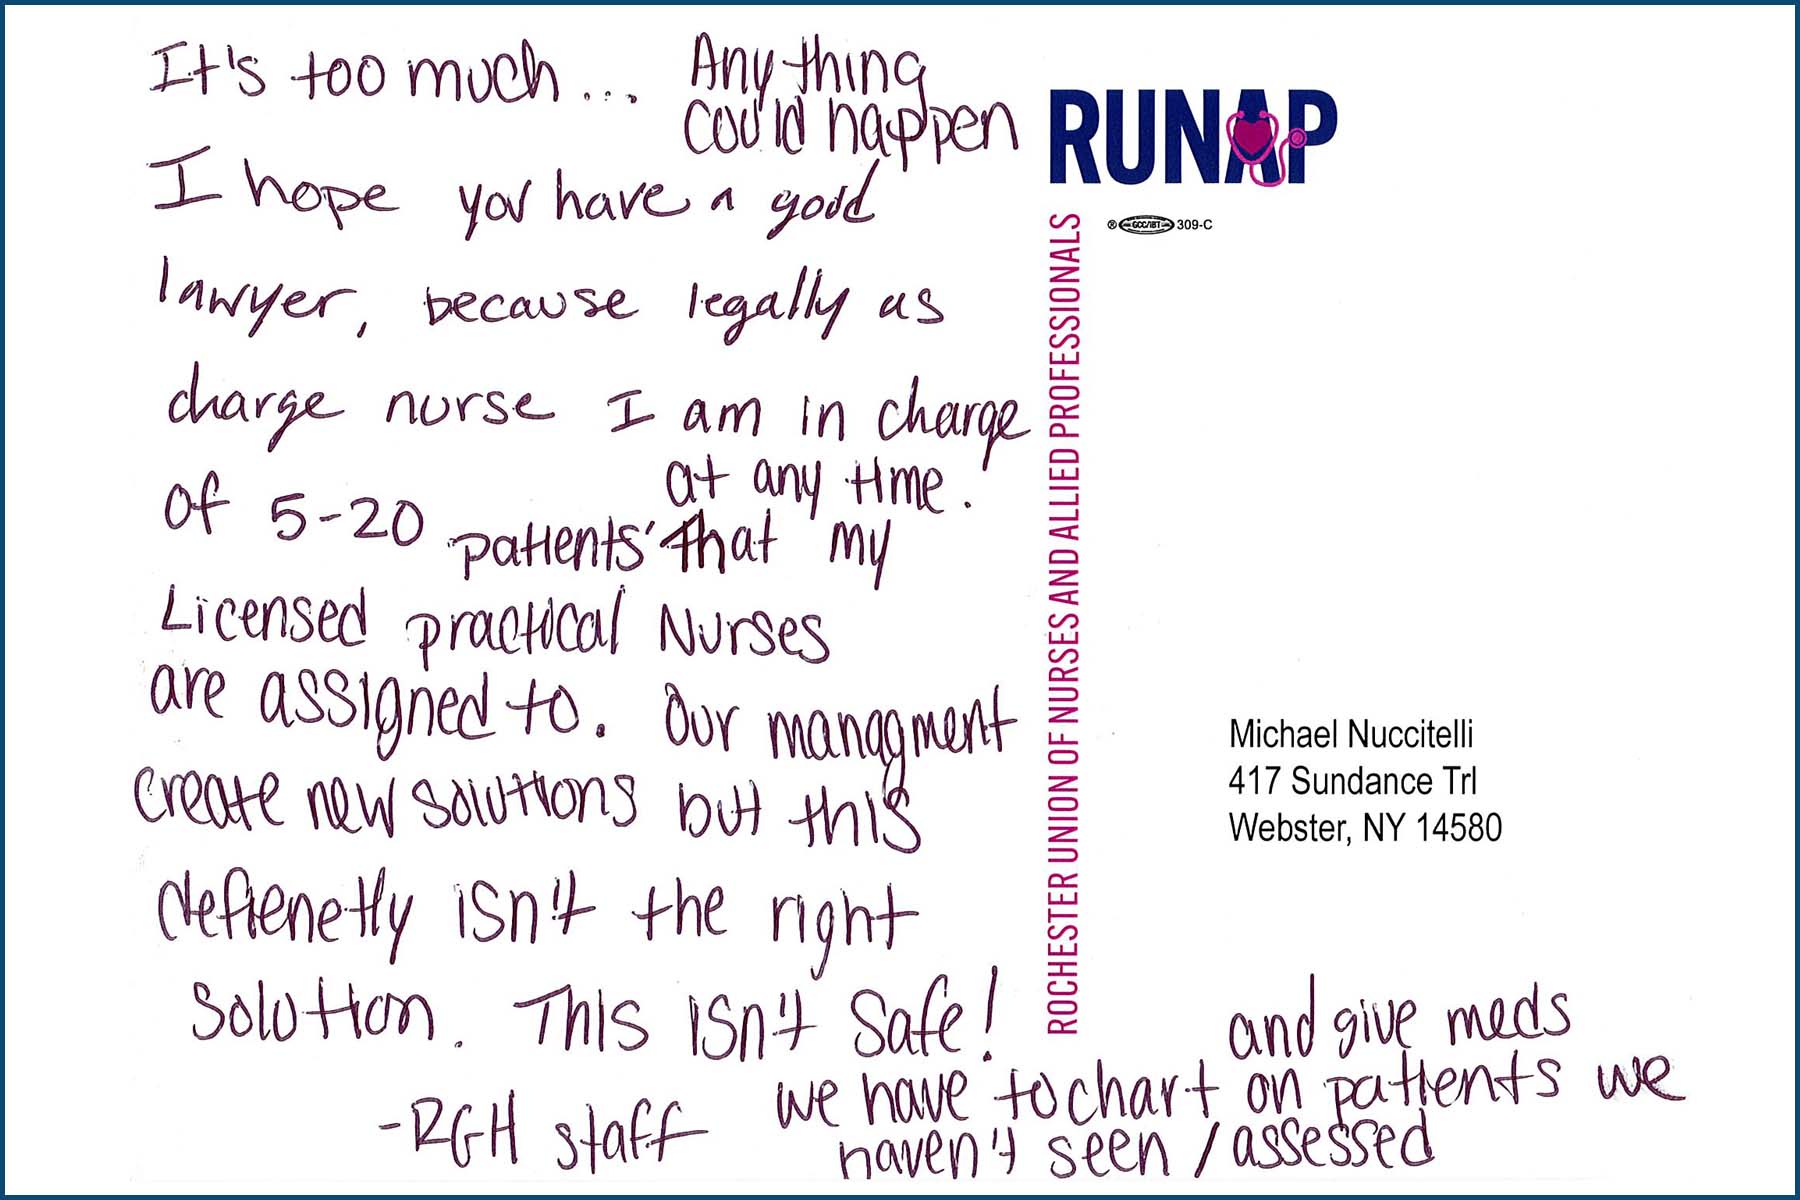 It's too much... Anything
could happen
I hope you have a good
lawyer, because legally as
charge nurse I am in charge
of 5-20 patients at any time! that my
Licensed practical Nurses
are assigned to. Our managment
create new solutions but this
defienetly isn't the right
solution. This isn't safe!
-RGH staff
we have to chart and give meds on patients we
haven't seen / assessed
RUNAP
® GCC/IBT 309-C
ROCHESTER UNION OF NURSES AND ALLIED PROFESSIONALS
Michael Nuccitelli
417 Sundance Trl
Webster, NY 14580